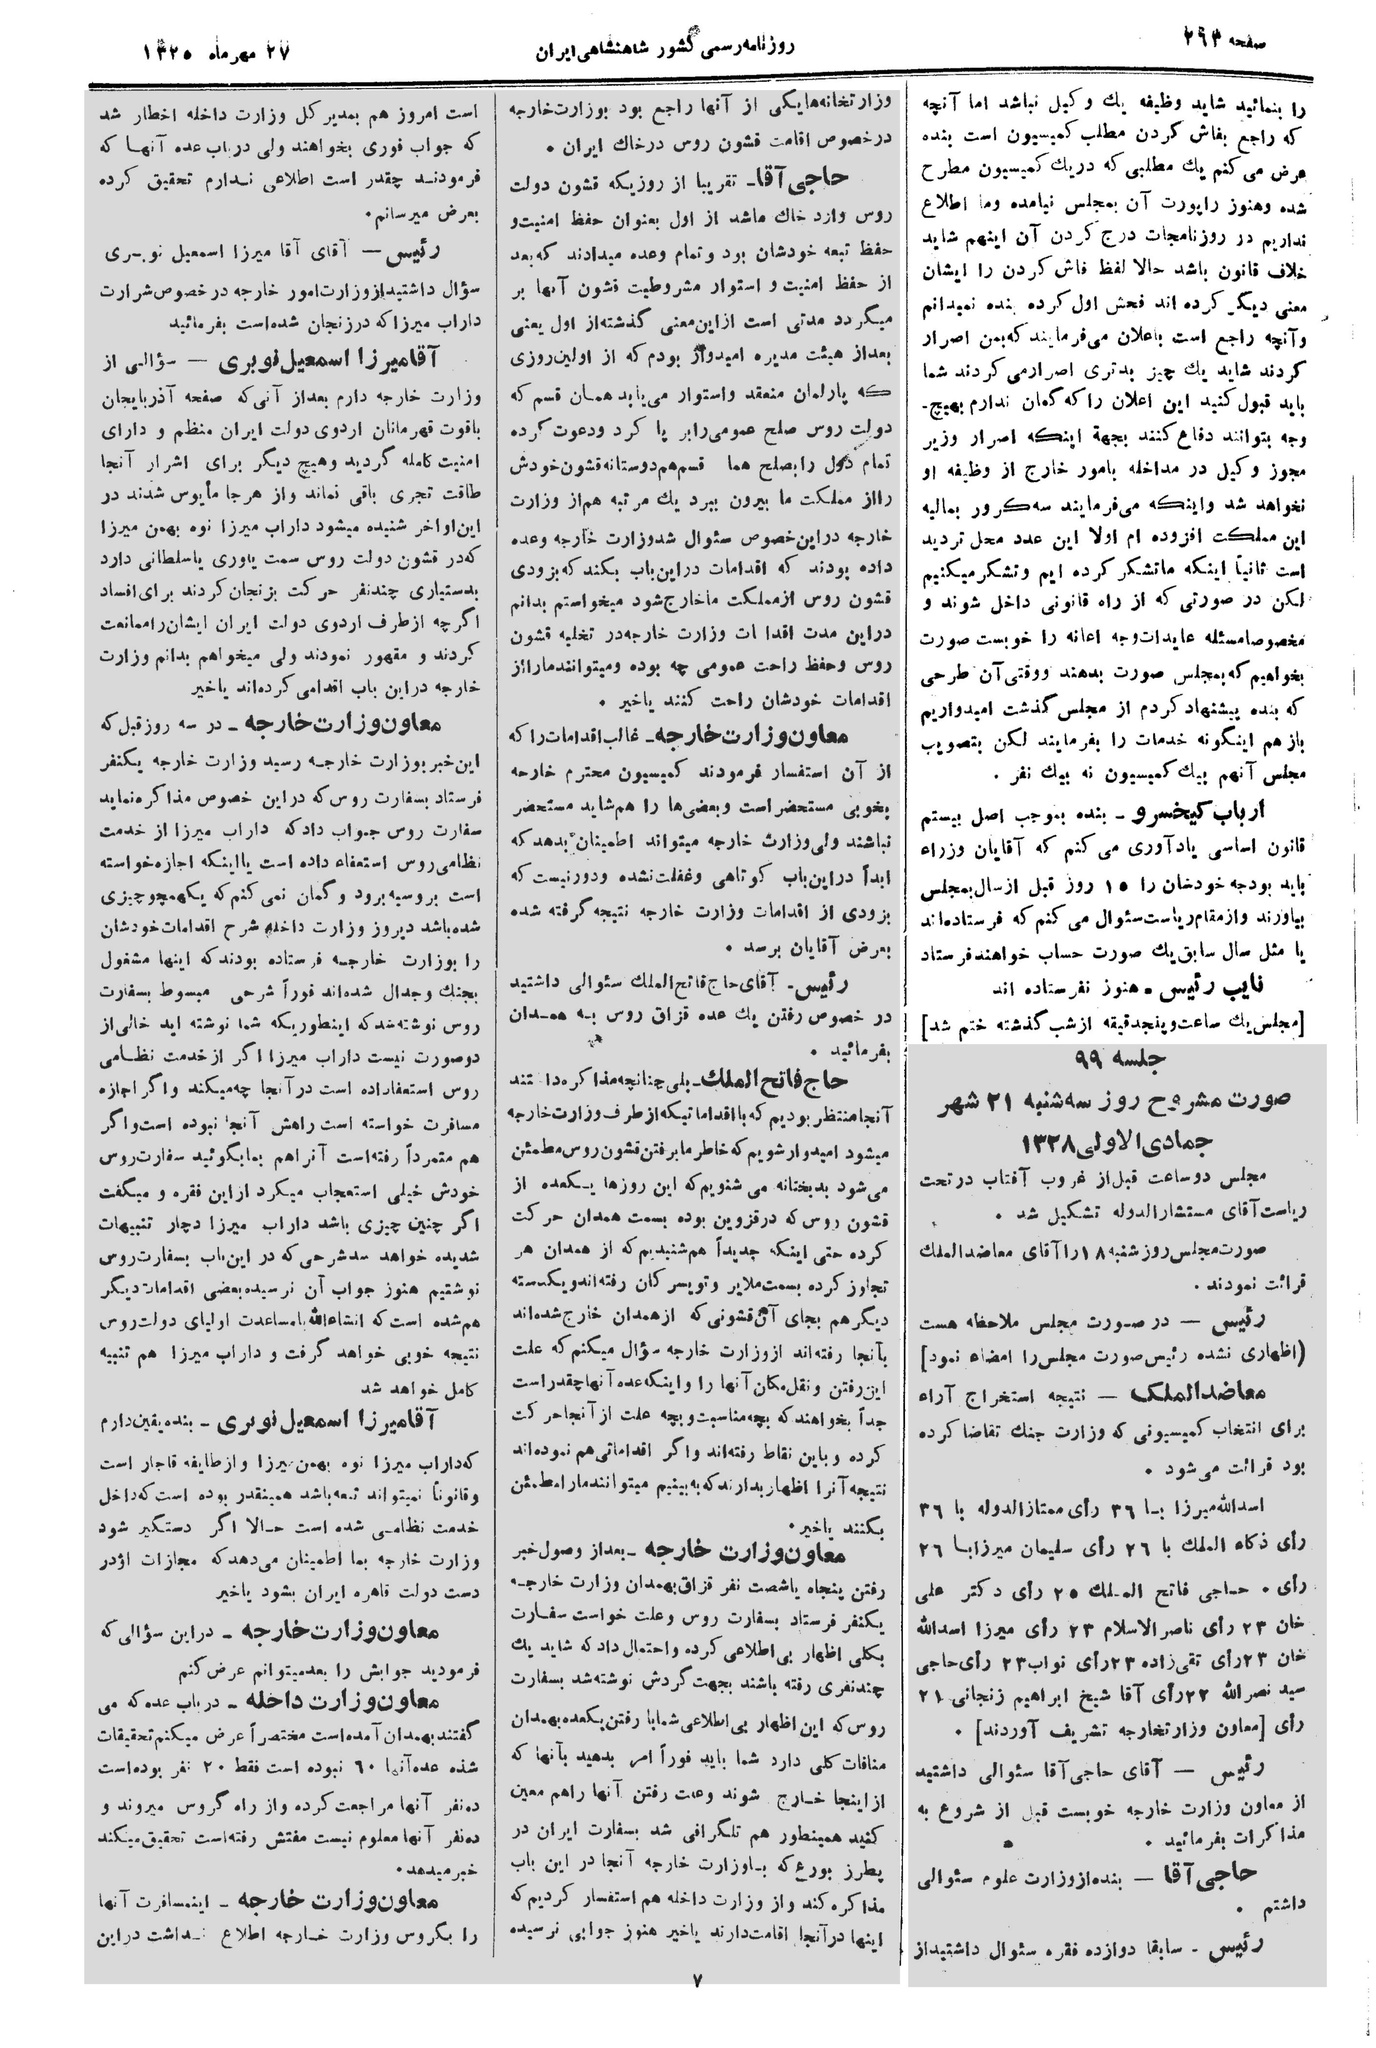 صفحه ۲۹۳
روزنامه رسمی کشور شاهنشاهی ایران
۲۷ مهرماه ۱۳۲۵
را بنمائید شاید وظیفه یك وکیل نباشد اما آنچه
که راجع بفاش کردن مطلب کمیسیون است بنده
عرض می کنم یك مطلبی که در یك کمیسیون مطرح
شده وهنوز راپورت آن بمجلس نیامده وما اطلاع
نداریم در روزنامجات درج کردن آن اینهم شاید
خلاف قانون باشد حالا لفظ فاش کردن را ایشان
معنی دیگر کرده اند فحش اول کرده بنده نمیدانم
وآنچه راجع است باعلان می‌فرمایند که بمن اصرار
کردند شاید یك چیز بدتری اصرار می کردند شما
باید قبول کنید این اعلان را که گمان ندارم بهیچ-
وجه بتوانند دفاع کنند بجهة اینکه اصرار وزیر
مجوز وکیل در مداخله بامور خارج از وظیفه او
نخواهد شد واینکه می‌فرمایند سه کرور بمالیه
این مملکت افزوده ام اولا این عدد محل تردید
است ثانیاً اینکه ما تشکر کرده ایم وتشکر میکنیم
لکن در صورتی که از راه قانونی داخل شوند و
مخصوصا مسئله عایدات وجه اعانه را خوبست صورت
بخواهیم که بمجلس صورت بدهند ووقتی آن طرحی
که بنده پیشنهاد کردم از مجلس گذشت امیدواریم
باز هم اینگونه خدمات را بفرمایند لکن بتصویب
مجلس آنهم بیك کمیسیون نه بیك نفر .
ارباب کیخسرو ـ بنده بموجب اصل بیستم
قانون اساسی یادآوری می کنم که آقایان وزراء
باید بودجه خودخان را ۱۵ روز قبل از سال بمجلس
بیاورند واز مقام ریاست سئوال می کنم که فرستاده‌اند
یا مثل سال سابق یك صورت حساب خواهند فرستاد
نایب رئیس ـ هنوز نفرستاده اند
[مجلس یك ساعت و پنجدقیقه از شب گذشته ختم شد]
جلسه ۹۹
صورت مشروح روز سه شنبه ۲۱ شهر
جمادی الاولی ۱۳۲۸
مجلس دو ساعت قبل از غروب آفتاب در تحت
ریاست آقای مستشار الدوله تشکیل شد .
صورت مجلس روز شنبه ۱۸ را آقای معاضد الملك
قرائت نمودند .
رئیس — در صورت مجلس ملاحظه هست
(اظهاری نشده رئیس صورت مجلس را امضاء نمود]
معاضدالملك — نتیجه استخراج آراء
برای انتخاب کمیسیونی که وزارت جنك تقاضا کرده
بود قرائت می شود .
اسدالله میرزا با ۳۶ رأی ممتازالدوله با ۳۶
رأی ذکاء الملك با ۲۶ رأی سلیمان میرزا با ۲۶
رأی . حاجی فاتح الملك ۲۵ رأی دکتر علی
خان ۲۳ رأی ناصر الاسلام ۲۳ رأی میرزا اسدالله
خان ۲۳ رأی تقی زاده ۲۳ رأی نواب ۲۳ رأی حاجی
سید نصرالله ۲۲ رأی آقا شیخ ابراهیم زنجانی ۲۱
رأی [معاون وزارتخارجه تشریف آوردند] .
رئیس — آقای حاجی آقا سئوالی داشتید
از معاون وزارت خارجه خوبست قبل از شروع به
مذاکرات بفرمائید .
حاجی آقا — بنده از وزارت علوم سئوالی
داشتم .
رئیس ـ سابقا دوازده فقره سئوال داشتید از
وزارتخانه‌ها یکی از آنها راجع بود بوزارت خارجه
در خصوص اقامت قشون روس در خاك ایران .
حاجی آقا ـ تقریبا از روزیکه قشون دولت
روس وارد خاك ما شد از اول بعنوان حفظ امنیت و
حفظ تبعه خودشان بود وتمام وعده میدادند که بعد
از حفظ امنیت و استوار مشروطیت قشون آنها بر
میگردد مدتی است از این معنی گذشته از اول یعنی
بعد از هیئت مدیره امیدوار بودم که از اولین روزی
که پارلمان منعقد واستوار می‌یابد همان قسم که
دولت روس صلح عمومی را بر پا کرد ودعوت کرده
تمام دول را بصلح هما قسم هم دوستانه قشون خودش
را از مملکت ما بیرون ببرد یك مرتبه هم از وزارت
خارجه در این خصوص سئوال شد وزارت خارجه وعده
داده بودند که اقدامات در این باب بکند که بزودی
قشون روس از مملکت ما خارج شود میخواستم بدانم
در این مدت اقدامات وزارت خارجه در تخلیه قشون
روس وحفظ راحت عمومی چه بوده ومیتوانند ما را از
اقدامات خودشان راحت کنند یا خیر .
معاون وزارت خارجه ـ غالب اقدامات را که
از آن استفسار فرمودند کمیسیون محترم خارجه
بخوبی مستحضر است وبعضی‌ها را هم شاید مستحضر
نباشند ولی وزارت خارجه میتواند اطمینان بدهد که
ابداً در این باب کوتاهی وغفلت نشده ودور نیست که
بزودی از اقدامات وزارت خارجه نتیجه گرفته شده
بعرض آقایان برسد .
رئیس ـ آقای حاج فاتح الملك سئوالی داشتید
در خصوص رفتن یك عده قزاق روس به همدان
بفرمائید .
حاج فاتح الملك ـ بلی چنانچه مذاکره داشتند
آنجا منتظر بودیم که با اقداماتیکه از طرف وزارت خارجه
میشود امیدوار شویم که خاطر ما برفتن قشون روس مطمئن
می شود بدبختانه می شنویم که این روزها یکعده از
قشون روس که در قزوین بوده بسمت همدان حرکت
کرده حتی اینکه جدیداً هم شنیدیم که از همدان هر
تجاوز کرده بسمت ملایر وتویسرکان رفته‌اند ویکدسته
دیگر هم بجای آن قشونی که از همدان خارج شده‌اند
بآنجا رفته‌اند از وزارت خارجه سؤال میکنم که علت
این رفتن ونقل مکان آنها را واینکه عده آنها چقدر است
جداً بخواهند که بچه مناسبت وبچه علت از آنجا حرکت
کرده وباین نقاط رفته‌اند واگر اقداماتی هم نموده‌اند
نتیجه آنرا اظهار بدارند که به بینیم میتوانند ما را مطمئن
بکنند یا خیر.
معاون وزارت خارجه ـ بعد از وصول خبر
رفتن پنجاه یا شصت نفر قزاق بهمدان وزارت خارجه
یکنفر فرستاد بسفارت روس وعلت خواست سفارت
بکلی اظهار بی اطلاعی کرده واحتمال داد که شاید یك
چند نفری رفته باشند بجهت گردش نوشته شد بسفارت
روس که این اظهار بی اطلاعی شما با رفتن یکعده بهمدان
منافات کلی دارد شما باید فوراً امر بدهید بآنها که
از اینجا خارج شوند وعلت رفتن آنها را هم معین
کنید همینطور هم تلگرافی شد بسفارت ایران در
پطرزبورغ که با وزارت خارجه آنجا در این باب
مذاکره کند واز وزارت داخله هم استفسار کردیم که
اینها در آنجا اقامت دارند یا خیر هنوز جوابی نرسیده
است امروز هم بمدیر کل وزارت داخله اخطار شد
که جواب فوری بخواهند ولی در باب عده آنها که
فرمودند چقدر است اطلاعی ندارم تحقیق کرده
بعرض میرسانم.
رئیس — آقای آقا میرزا اسمعیل نوبری
سؤال داشتید از وزارت امور خارجه در خصوص شرارت
داراب میرزا که در زنجان شده است بفرمائید
آقا میرزا اسمعیل نوبری — سؤالی از
وزارت خارجه دارم بعد از آنی که صفحه آذربایجان
باقوت قهرمانان اردوی دولت ایران منظم و دارای
امنیت کامله گردید وهیچ دیگر برای اشرار آنجا
طاقت تجری باقی نماند واز هرجا مأیوس شدند در
این اواخر شنیده میشود داراب میرزا نوه بهمن میرزا
که در قشون دولت روس سمت یاوری یا سلطانی دارد
بدستیاری چند نفر حرکت بزنجان کردند برای افساد
اگر چه از طرف اردوی دولت ایران ایشان را ممانعت
کردند و مقهور نمودند ولی میخواهم بدانم وزارت
خارجه در این باب اقدامی کرده‌اند یا خیر
معاون وزارت خارجه ـ در سه روز قبل که
این خبر بوزارت خارجه رسید وزارت خارجه یکنفر
فرستاد بسفارت روس که در این خصوص مذاکره نماید
سفارت روس جواب داد که داراب میرزا از خدمت
نظامی روس استعفاء داده است یا اینکه اجازه خواسته
است بروسیه برود و گمان نمی کنم که یکهمچو چیزی
شده باشد دیروز وزارت داخله شرح اقدامات خودشان
را بوزارت خارجه فرستاده بودند که اینها مشغول
بجنك وجدال شده‌اند فوراً شرحی مبسوط بسفارت
روس نوشته شد که اینطوریکه شما نوشته اید خالی از
دو صورت نیست داراب میرزا اگر از خدمت نظامی
روس استعفا داده است در آنجا چه میکند واگر اجازه
مسافرت خواسته است راهش آنجا نبوده است واگر
هم متمرداً رفته است آنرا هم بما بگوئید سفارت روس
خودش خیلی استعجاب میکرد از این فقره و میگفت
اگر چنین چیزی باشد داراب میرزا دچار تنبیهات
شدیده خواهد شد شرحی که در این باب بسفارت روس
نوشتیم هنوز جواب آن نرسیده بعضی اقدامات دیگر
هم شده است که انشاءالله با مساعدت اولیای دولت روس
نتیجه خوبی خواهد گرفت و داراب میرزا هم تنبیه
کامل خواهد شد
آقا میرزا اسمعیل نوبری ـ بنده یقین دارم
که داراب میرزا نوه بهمن میرزا واز طایفه قاجار است
وقانوناً نمیتواند تبعه باشد همینقدر بوده است که داخل
خدمت نظامی شده است حالا اگر دستگیر شود
وزارت خارجه بما اطمینان می‌دهد که مجازات او در
دست دولت قاهره ایران بشود یا خیر
معاون وزارت خارجه ـ در این سؤالی که
فرمودید جوابش را بعد میتوانم عرض کنم
معاون وزارت داخله ـ در باب عده که می
گفتند بهمدان آمده است مختصراً عرض میکنم تحقیقات
شده عده آنها ۶۰ نبوده است فقط ۲۰ نفر بوده است
ده نفر آنها مراجعت کرده واز راه گروس میروند و
ده نفر آنها معلوم نیست مفتش رفته است تحقیق میکند
خبر میدهد.
معاون وزارت خارجه ـ اینمسافرت آنها
را بگروس وزارت خارجه اطلاع نداشت در این
۷